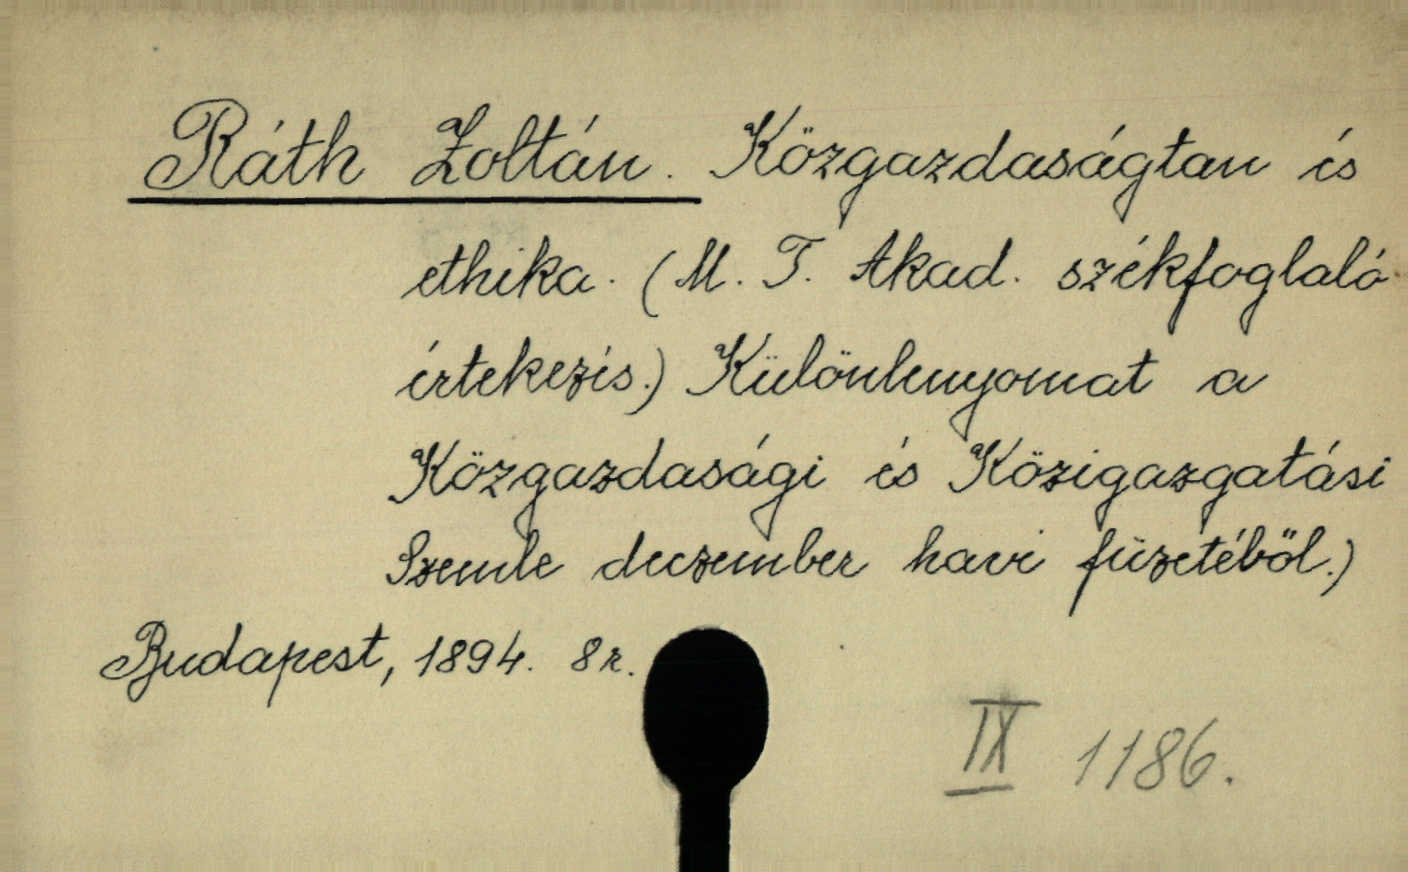 Ráth Zoltán. Közgazdaságtan és
ethika. (M. T. Akad. székfoglaló
értekezés.) Különlenyomat a
Közgazdasági és Közigazgatási
Szemle deczember havi füzetéből.)
Budapest, 1894. 8r.
IX 1186.